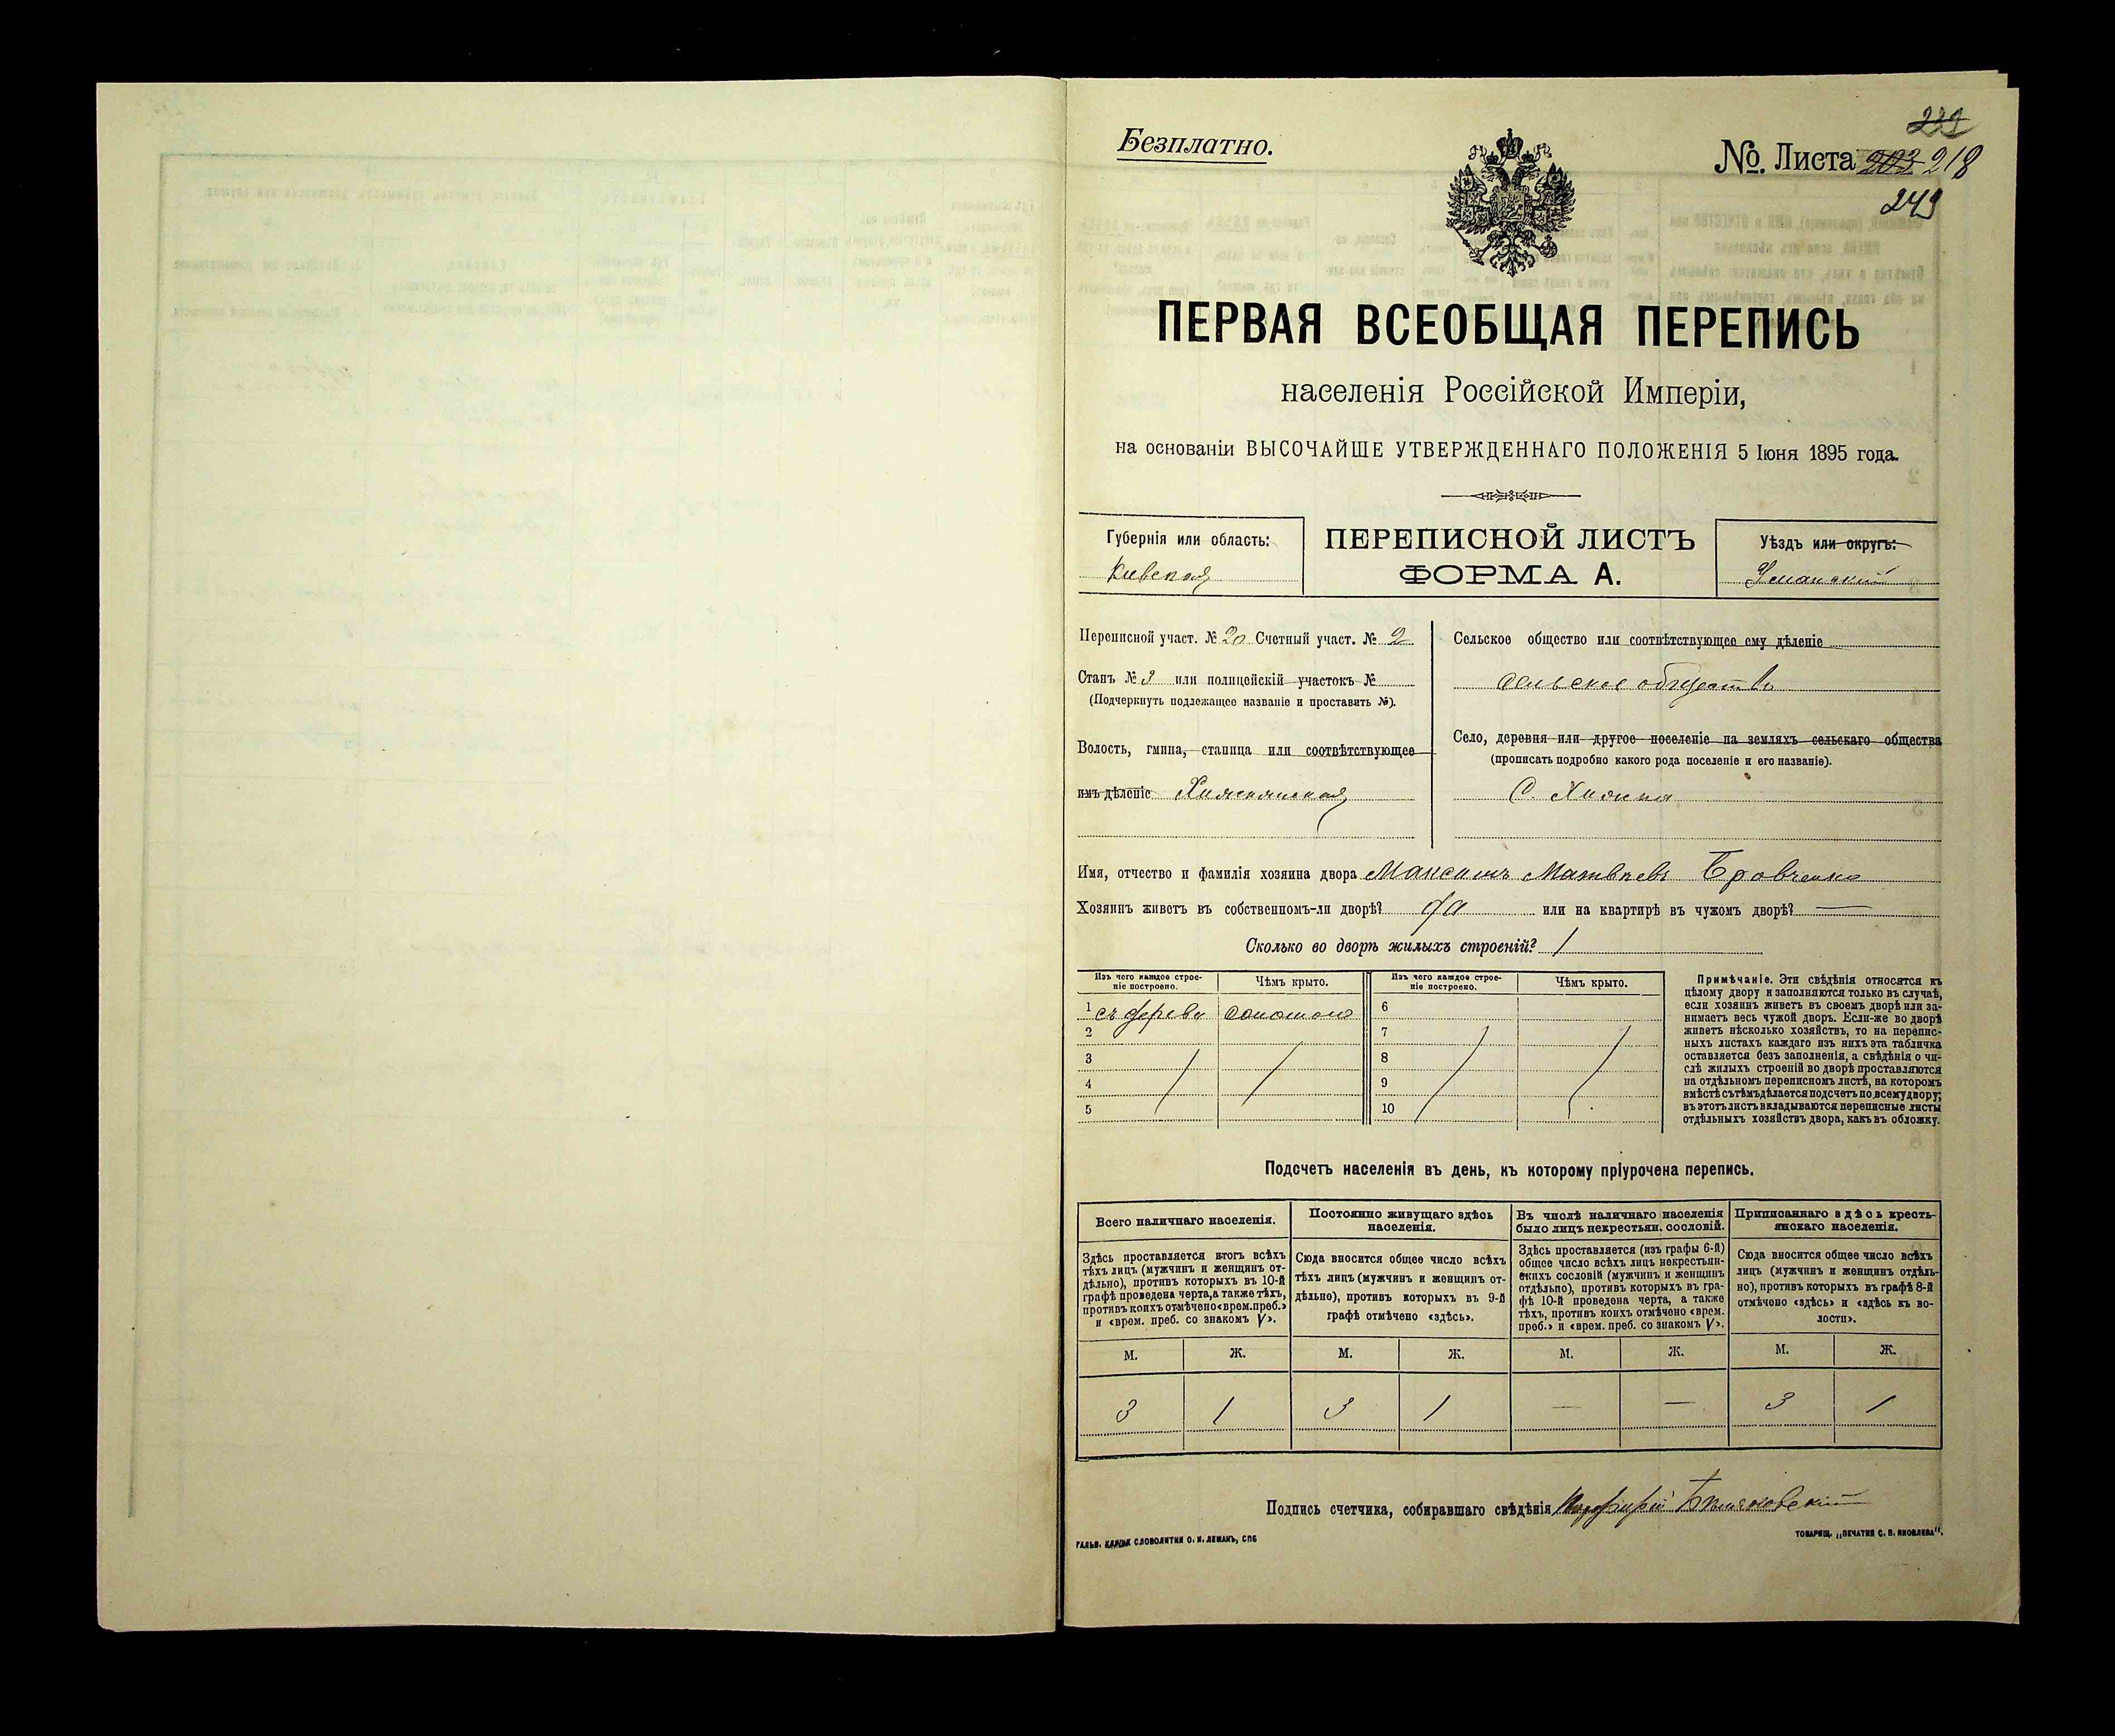 Безплатно.
239
№. Листа 203 218
249
ПЕРВАЯ ВСЕОБЩАЯ ПЕРЕПИСЬ
населенія Россійской Имперіи,
на основаніи ВЫСОЧАЙШЕ УТВЕРЖДЕННАГО ПОЛОЖЕНІЯ 5 Іюня 1895 года.
Губернія или область:
Кіевская
ПЕРЕПИСНОЙ ЛИСТЪ
ФОРМА А.
Уѣздъ или округъ:
Уманскій
Переписной участ. № 20 Счетный участ. № 2
Станъ № 3 или полицейскій участокъ №
(Подчеркнуть подлежащее названіе и проставить №).
Волость, гмина, станица или соотвѣтствующее
имъ дѣленіе Хижнянская
Сельское общество или соотвѣтствующее ему дѣленіе
сельское общество
Село, деревня или другое поселеніе на земляхъ сельскаго общества
(прописать подробно какого рода поселеніе и его названіе).
С. Хижна
Имя, отчество и фамилія хозяина двора Максимъ Матвѣевъ Бровченко
Хозяинъ живетъ въ собственномъ-ли дворѣ? да или на квартирѣ въ чужомъ дворѣ? —
Сколько во дворѣ жилыхъ строеній? 1
Изъ чего каждое строе-
ніе построено.
Чѣмъ крыто.
Изъ чего каждое строе-
ніе построено.
Чѣмъ крыто.
1 съ дерева соломою 6
2 7
3 8
4 9
5 10
Примѣчаніе. Эти свѣдѣнія относятся къ
цѣлому двору и заполняются только въ случаѣ,
если хозяинъ живетъ въ своемъ дворѣ или за-
нимаетъ весь чужой дворъ. Если-же во дворѣ
живетъ нѣсколько хозяйствъ, то на перепис-
ныхъ листахъ каждаго изъ нихъ эта табличка
оставляется безъ заполненія, а свѣдѣнія о чи-
слѣ жилыхъ строеній во дворѣ проставляются
на отдѣльномъ переписномъ листѣ, на которомъ
вмѣстѣ съ тѣмъ дѣлается подсчетъ по всему двору;
въ этотъ листъ вкладываются переписные листы
отдѣльныхъ хозяйствъ двора, какъ въ обложку.
Подсчетъ населенія въ день, къ которому пріурочена перепись.
Всего наличнаго населенія.
Здѣсь проставляется итогъ всѣхъ
тѣхъ лицъ (мужчинъ и женщинъ от-
дѣльно), противъ которыхъ въ 10-й
графѣ проведена черта, а также тѣхъ,
противъ коихъ отмѣчено «врем. преб.»
и «врем. преб. со знакомъ V».
Постоянно живущаго здѣсь
населенія.
Сюда вносится общее число всѣхъ
тѣхъ лицъ (мужчинъ и женщинъ от-
дѣльно), противъ которыхъ въ 9-й
графѣ отмѣчено «здѣсь».
Въ числѣ наличнаго населенія
было лицъ некрестьян. сословій.
Здѣсь проставляется (изъ графы 6-й)
общее число всѣхъ лицъ некрестьян-
скихъ сословій (мужчинъ и женщинъ
отдѣльно), противъ которыхъ въ гра-
фѣ 10-й проведена черта, а также
тѣхъ, противъ коихъ отмѣчено «врем.
преб.» и «врем. преб. со знакомъ V».
Приписаннаго здѣсь кресть-
янскаго населенія.
Сюда вносится общее число всѣхъ
лицъ (мужчинъ и женщинъ отдѣль-
но), противъ которыхъ въ графѣ 8-й
отмѣчено «здѣсь» и «здѣсь къ во-
лости».
М. Ж. М. Ж. М. Ж. М. Ж.
3 1 3 1 — — 3 1
Подпись счетчика, собиравшаго свѣдѣнія Порфирій
ГАЛЬВ. КЛИШЕ СЛОВОЛИТНИ О. И. ЛЕМАНЪ, СПБ
ТОВАРИЩ. „ПЕЧАТНЯ С. П. ЯКОВЛЕВА".